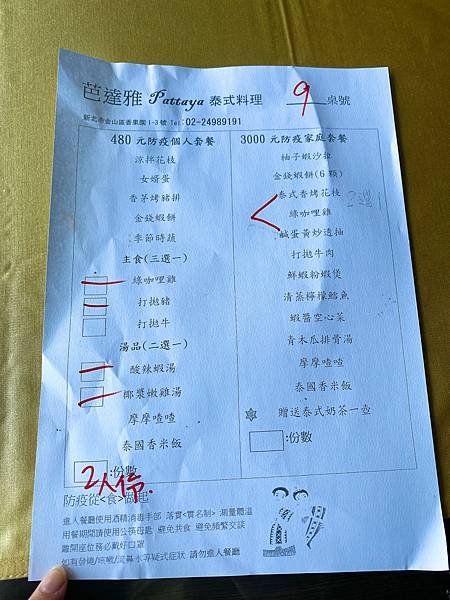 芭達雅 Pattaya 泰式料理 9 桌號
新北市金山區香果園1-3號 Tel:02-24989191
480 元防疫個人套餐
涼拌花枝
女婿蛋
香茅烤豬排
金錢蝦餅
季節時蔬
主食(三選一)
綠咖哩雞
打拋豬
打拋牛
湯品(二選一)
酸辣蝦湯
椰漿嫩雞湯
摩摩喳喳
泰國香米飯
:份數
2人份.
3000 元防疫家庭套餐
柚子蝦沙拉
金錢蝦餅(6顆)
泰式香烤花枝
綠咖哩雞
2選1
鹹蛋黃炒透抽
打拋牛肉
鮮蝦粉蝦煲
清蒸檸檬鱸魚
蝦醬空心菜
青木瓜排骨湯
摩摩喳喳
泰國香米飯
贈送泰式奶茶一壺
:份數
防疫從<食>做起
進入餐廳使用酒精消毒手部 落實<實名制> 測量體溫
用餐期間請使用公筷母匙 避免共食 避免頻繁交談
離開座位務必戴好口罩
如有發燒/咳嗽/流鼻水等疑式症狀 請勿進入餐廳